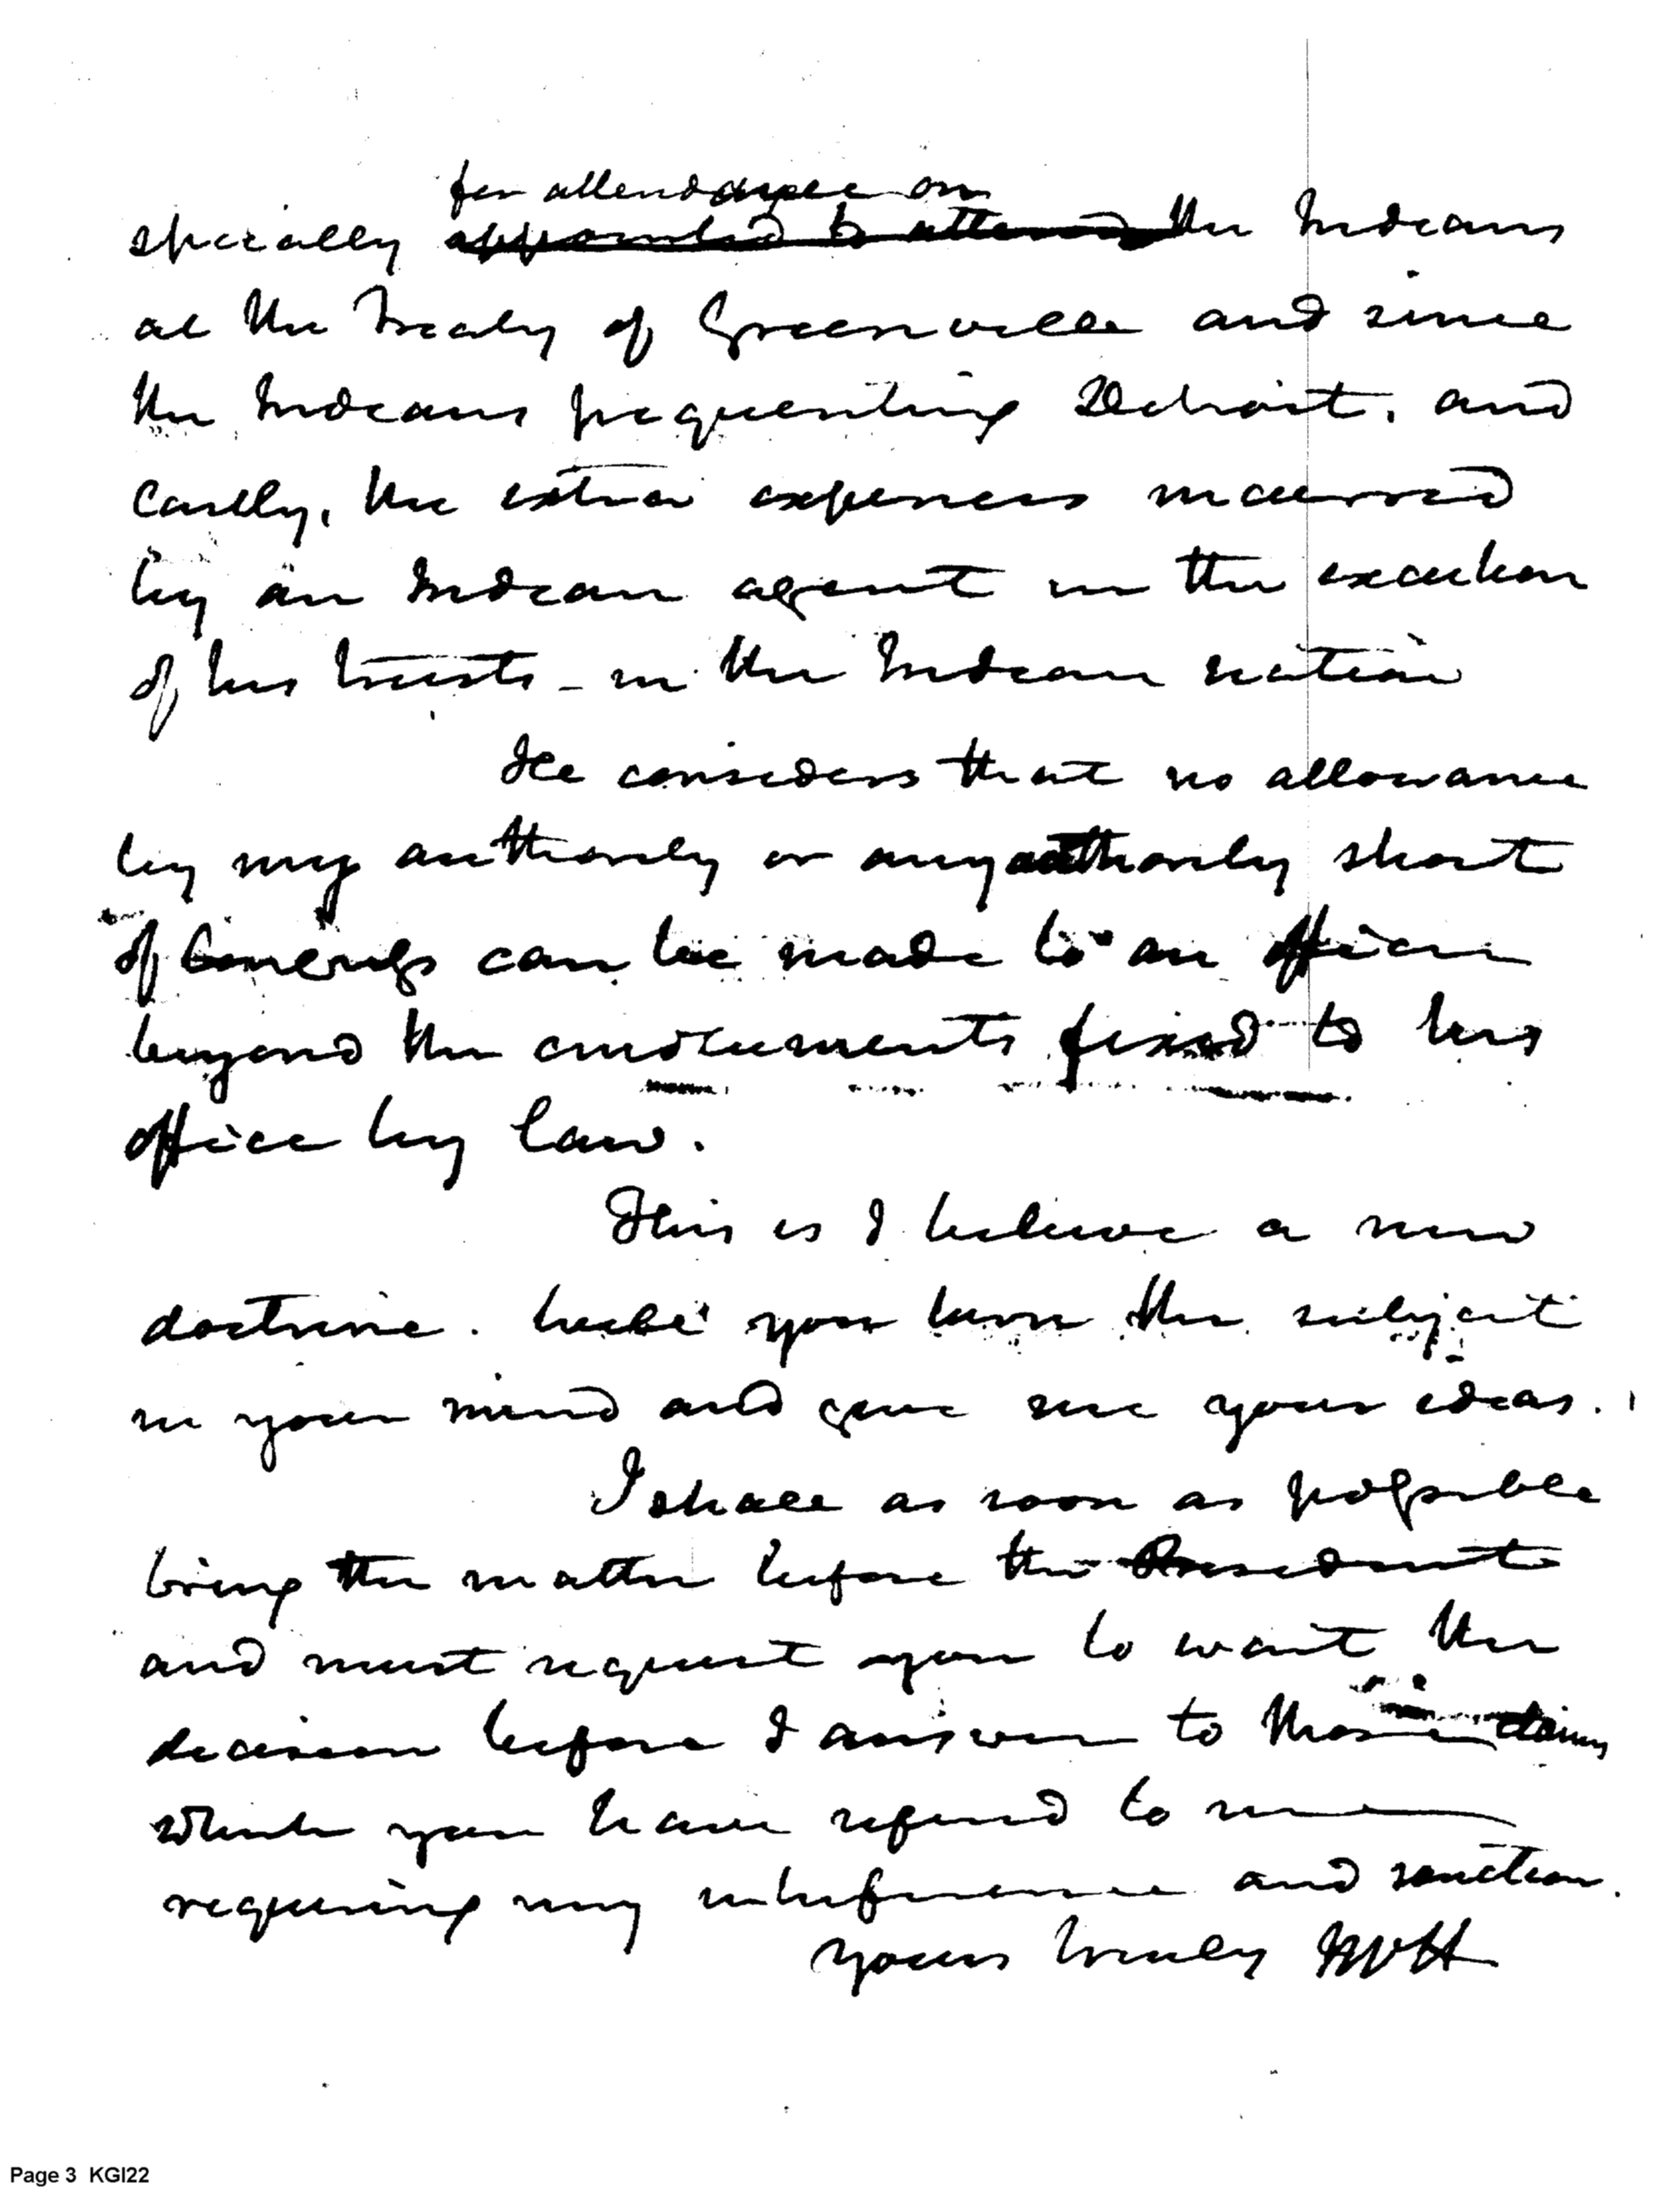 for attendance on
specially appointed to attend the Indians
at the Treaty of Greenville and since
the Indians frequenting Detroit, and
lastly, the extra expences incurred
by an Indian agent in the execution
of his trusts - in the Indian nation
He considers that no allowance
by my authority or any authority short
of Congress can be made to an officer
beyond the emoluments fixed to his
office by law.
This is I believe a new
doctrine. you turn the subject
in your mind and give me your ideas.
I shall as soon as possible
bring the matter before the President
and must request you to wait the
decision before I answer to those claims
which you have referred to me
requiring my interference and sanction.
yours truly
Page 3 KGI22